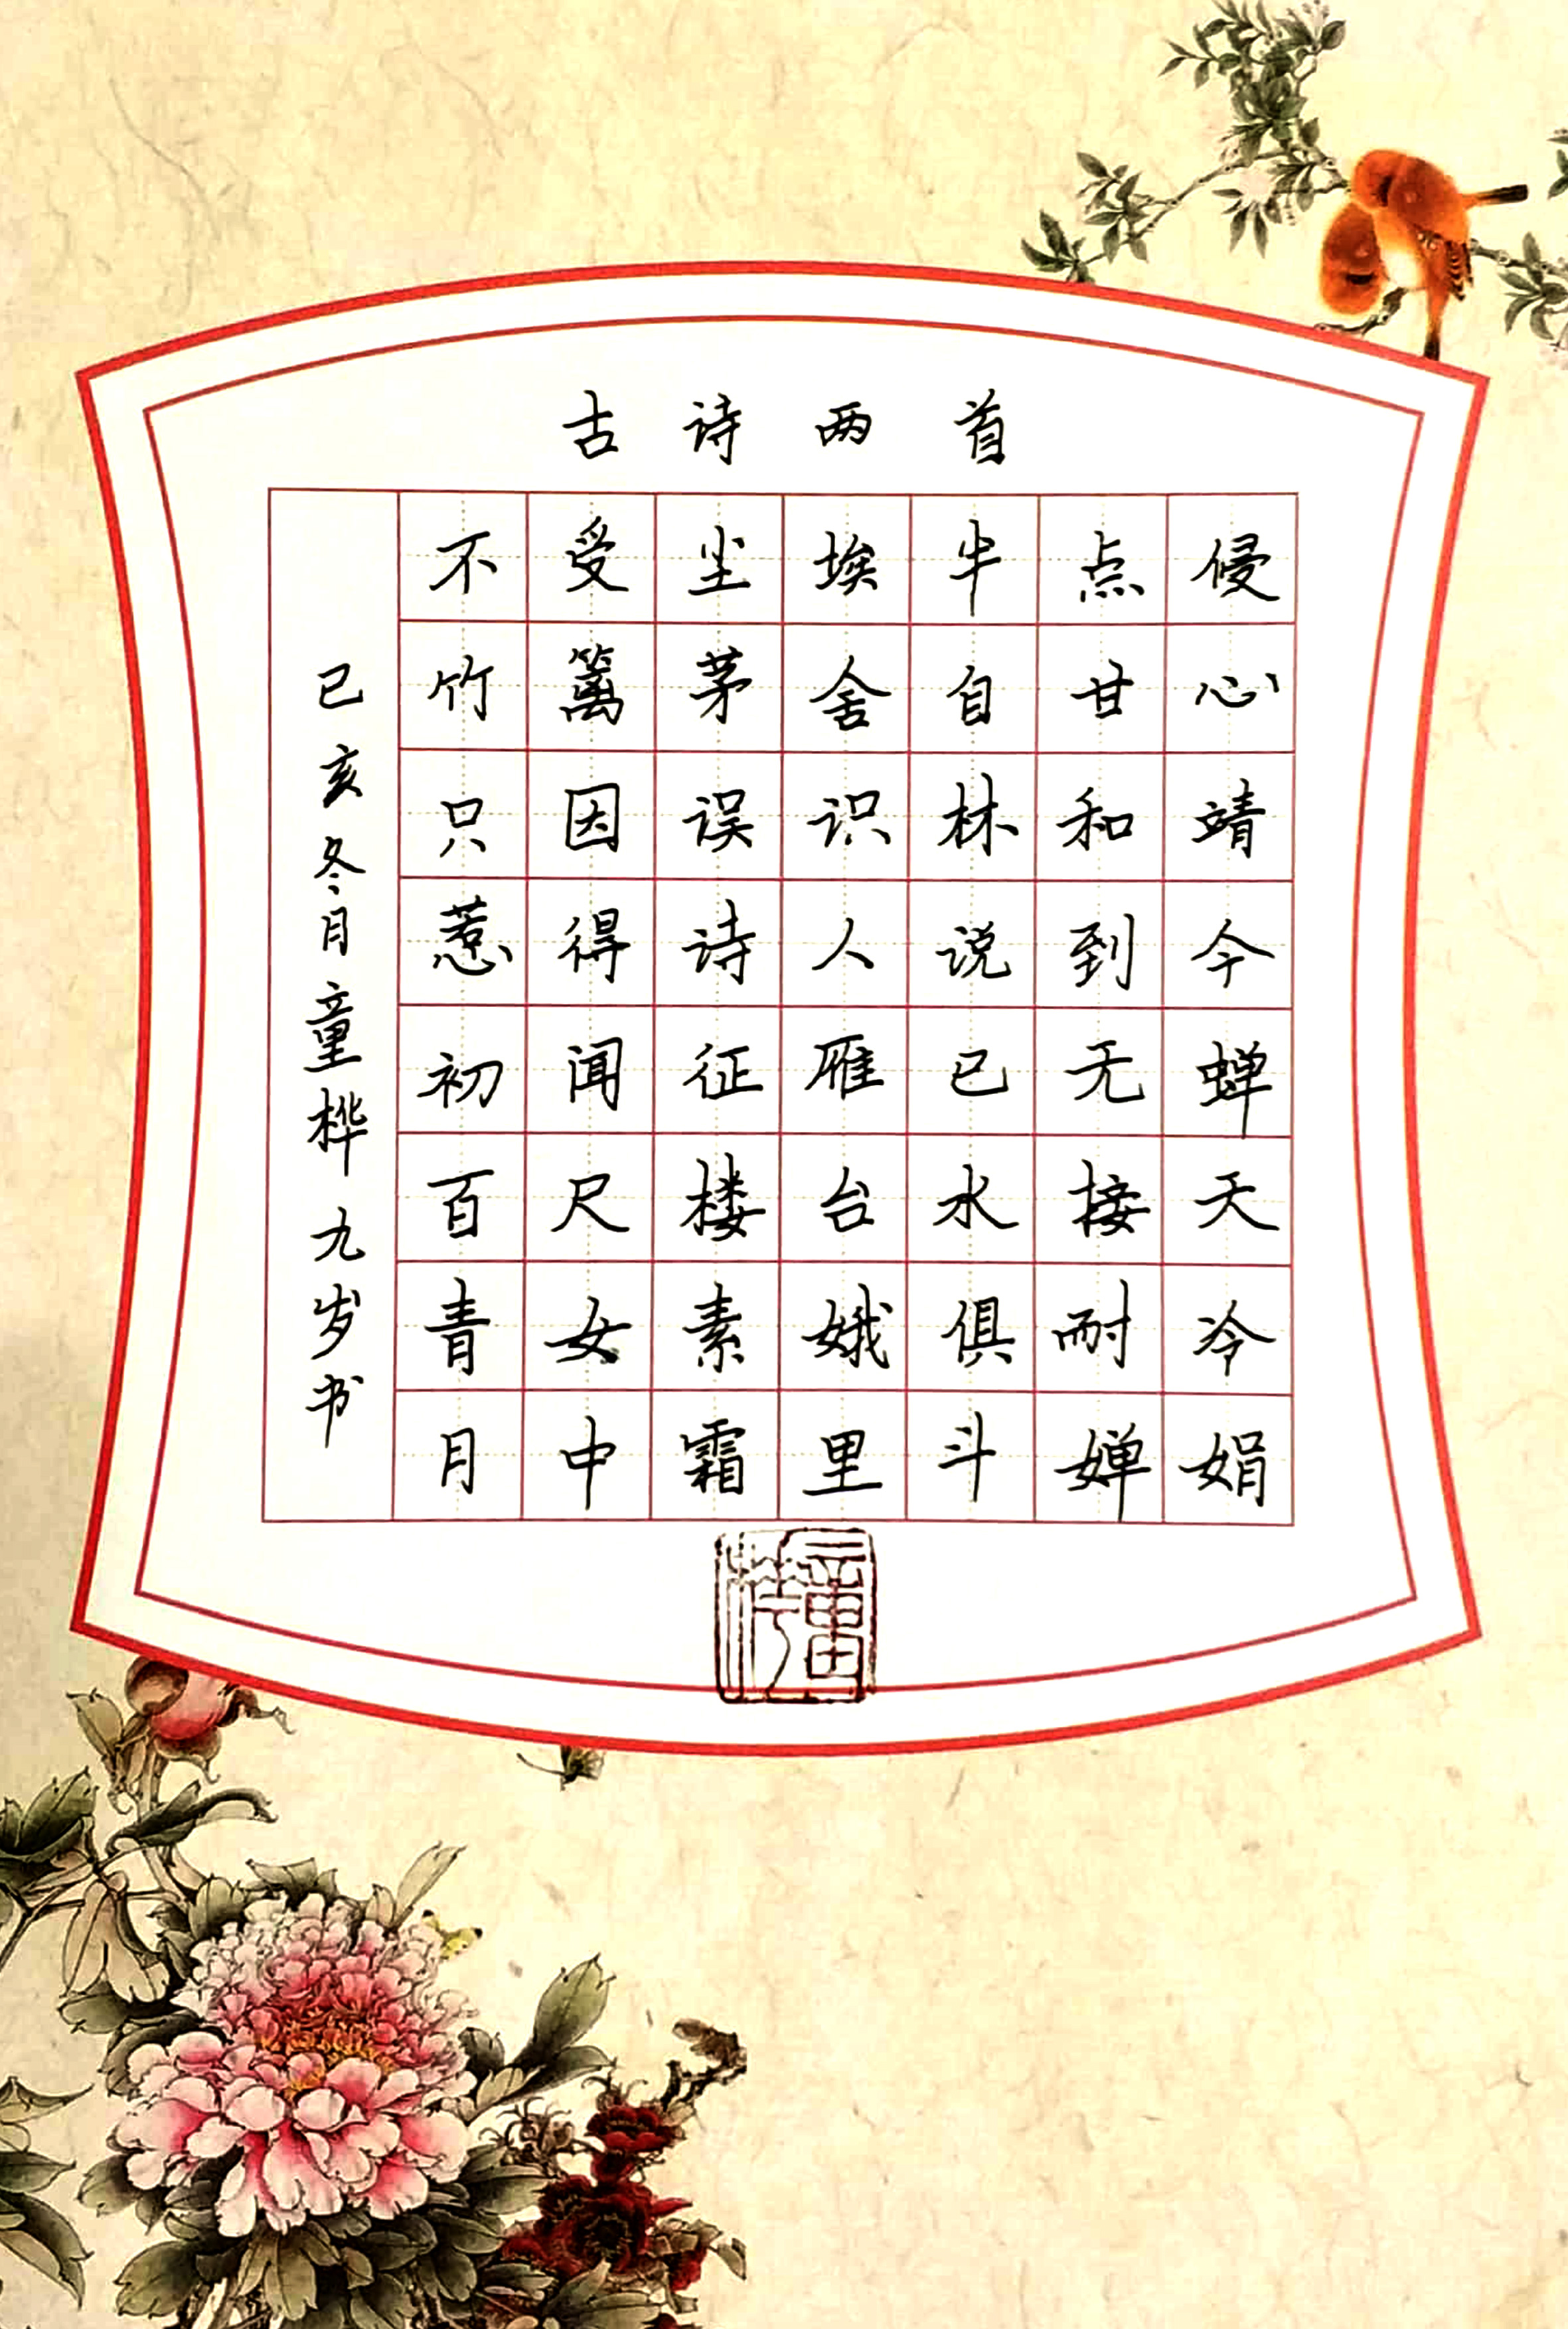 古诗两首
不受尘埃半点侵
竹篱茅舍自甘心
只因误识林和靖
惹得诗人说到今
初闻征雁已无蝉
百尺楼台水接天
青女素娥俱耐冷
月中霜里斗婵娟
己亥冬月童桦九岁书
童桦